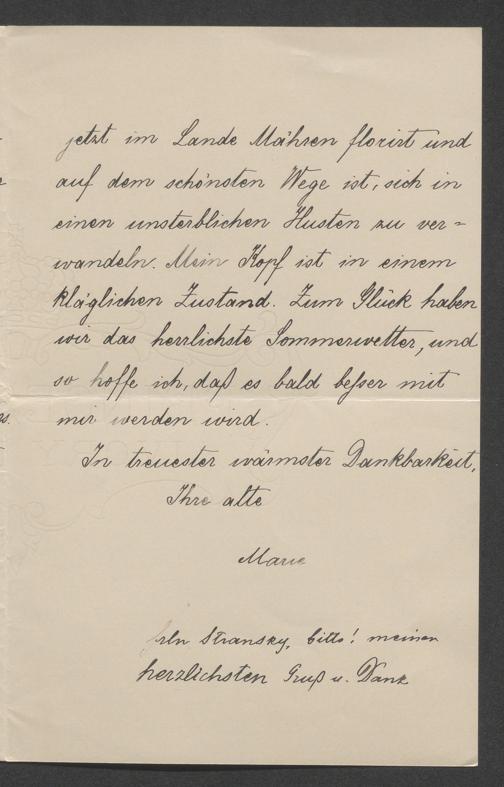 jetzt im Lande Mähren florirt und
auf dem schönsten Wege ist, sich in
einen unsterblichen Husten zu ver=
wandeln. Mein Kopf ist in einem
kläglichen Zustand. Zum Glück haben
wir das herrlichste Sommerwetter, und
so hoffe ich, daß es bald beßer mit
mir werden wird.
In treuester wärmster Dankbarkeit,
Ihre alte
Marie
Frln Stransky, bitte! meinen
herzlichsten Gruß u. Dank